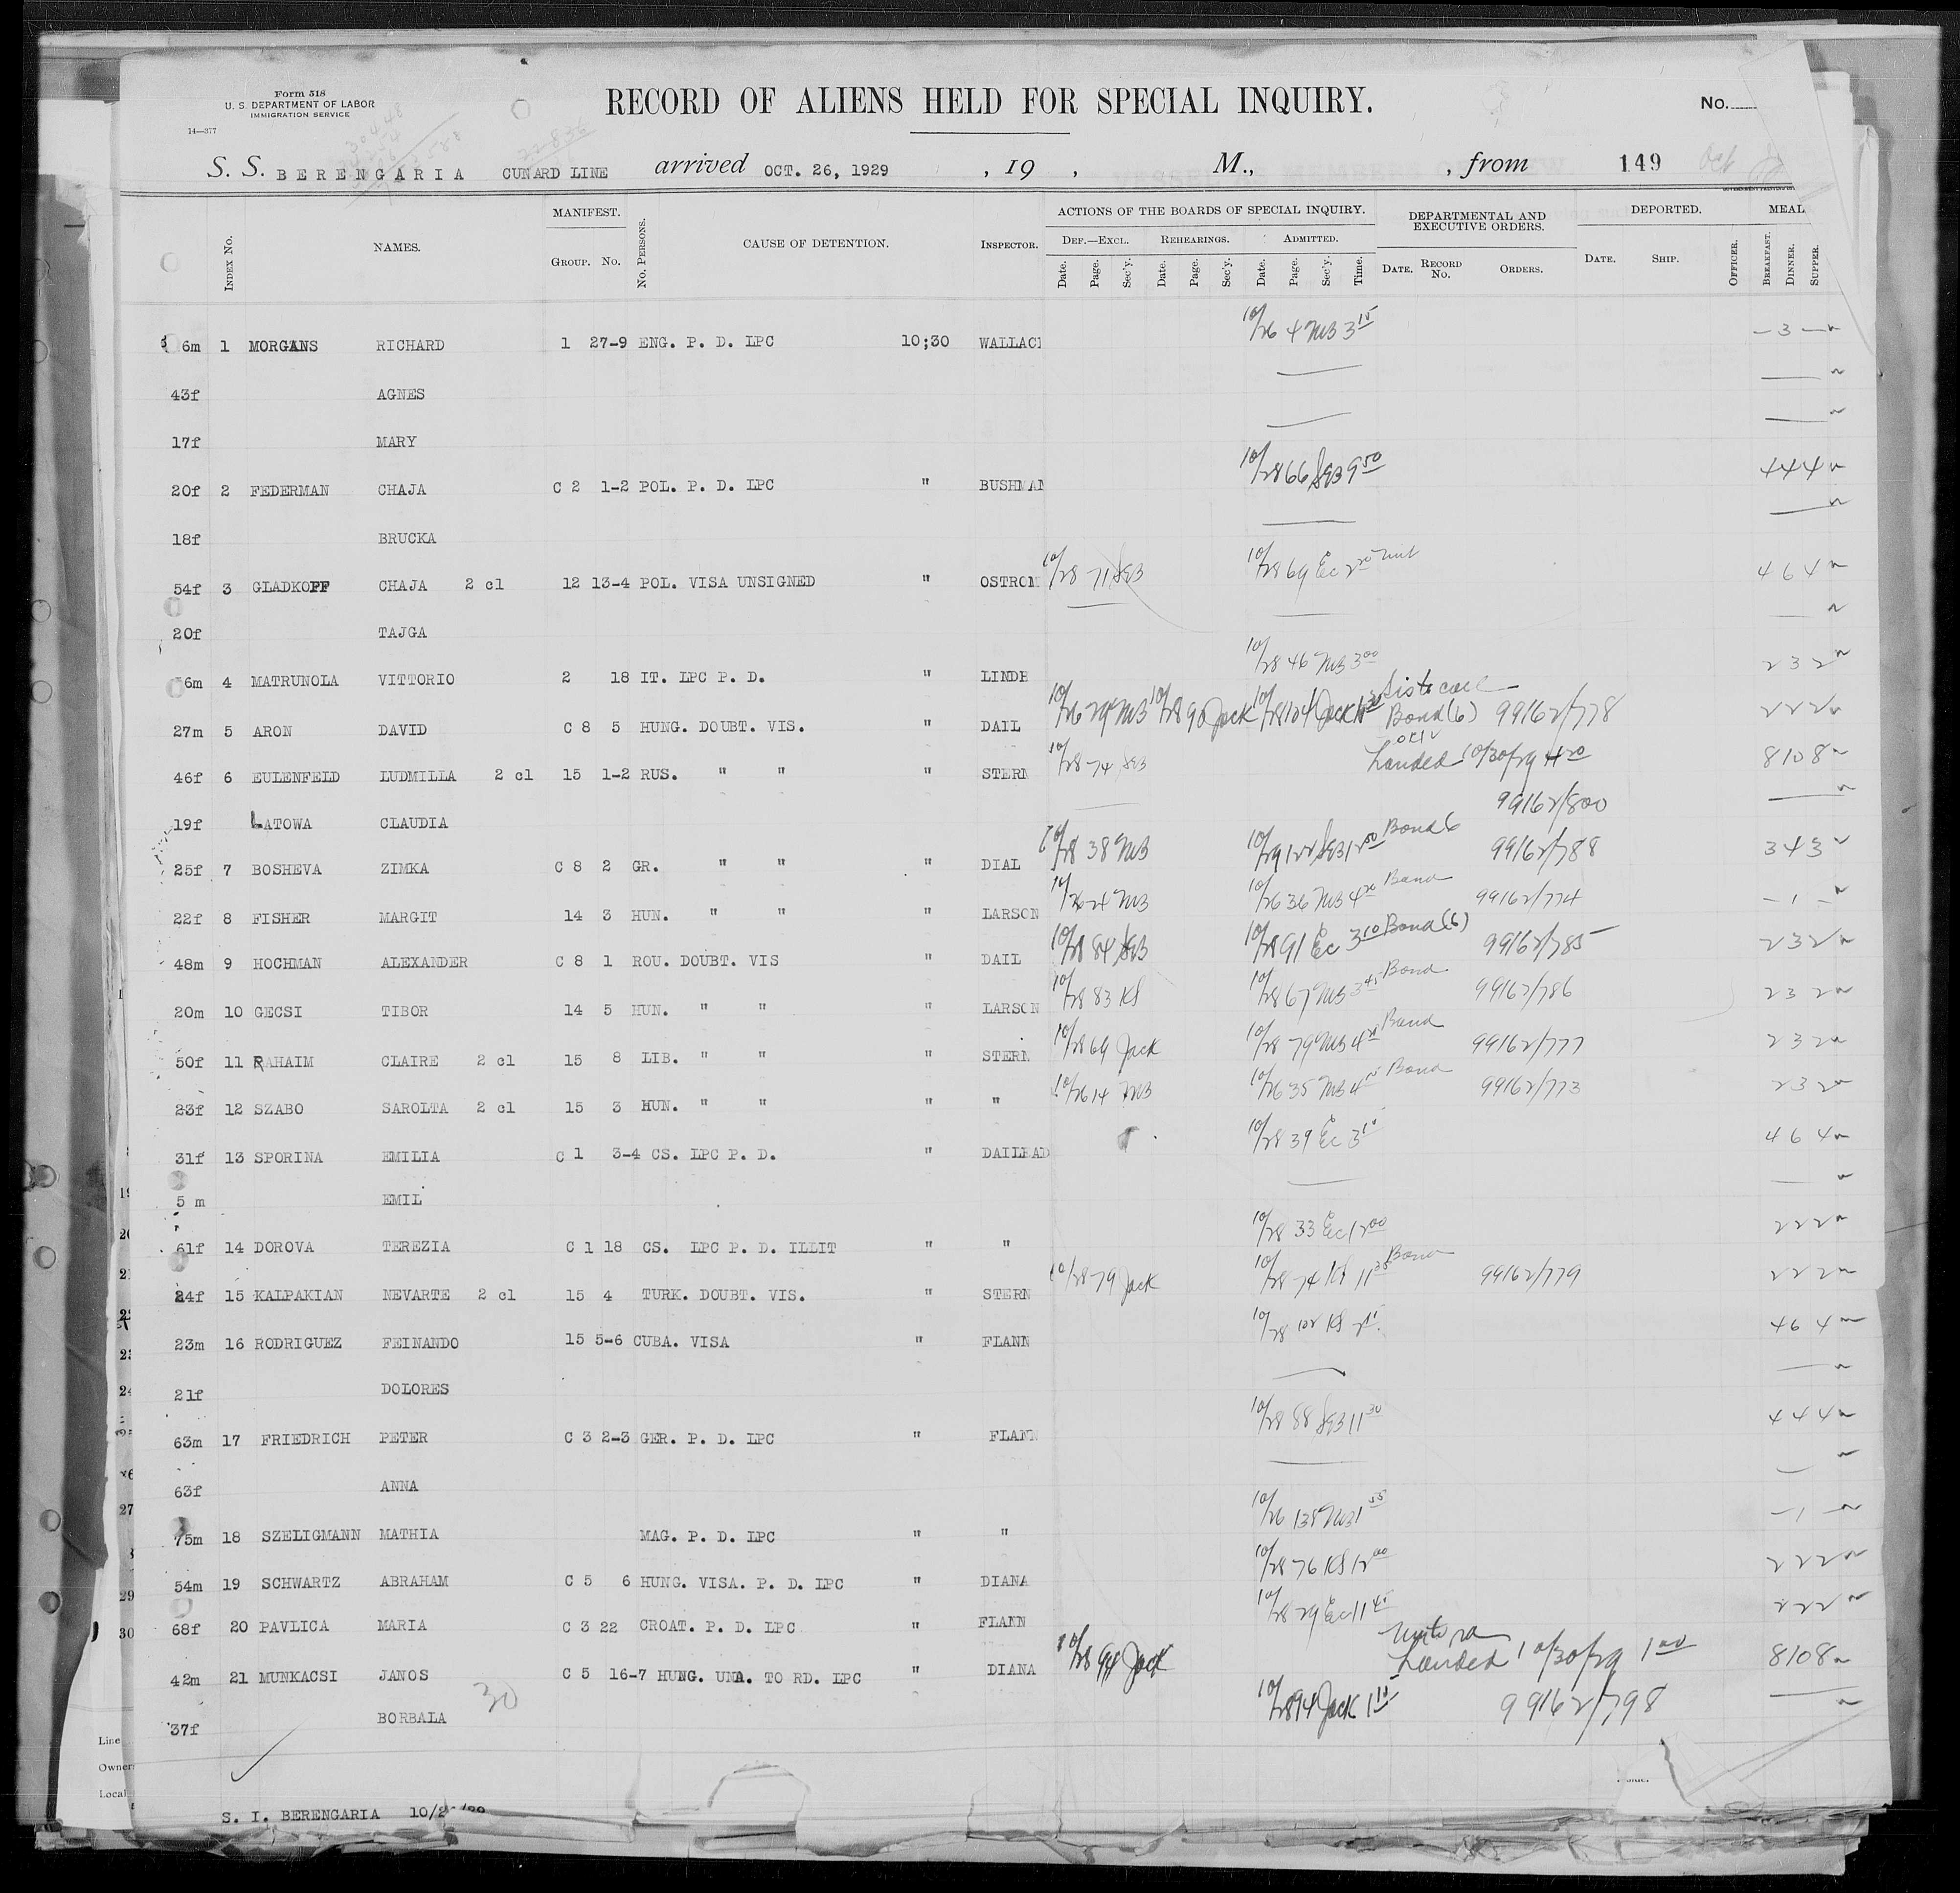 Form 518
U. S. DEPARTMENT OF LABOR
IMMIGRATION SERVICE
14—377
RECORD OF ALIENS HELD FOR SPECIAL INQUIRY.
No.
S. S. BERENGARIA CUNARD LINE arrived OCT. 26, 1929 , 19 , M., , from 149
INDEX No. NAMES. MANIFEST. GROUP. NO. No. PERSONS. CAUSE OF DETENTION. INSPECTOR. ACTIONS OF THE BOARDS OF SPECIAL INQUIRY. DEF.—EXCL. REHEARINGS. ADMITTED. Date. Page. Sec'y. Date. Page. Sec'y. Date. Page. Sec'y. Time. DEPARTMENTAL AND EXECUTIVE ORDERS. DATE. RECORD No. ORDERS. DEPORTED. DATE. SHIP. OFFICER. MEAL BREAKFAST. DINNER. SUPPER.
6m 1 MORGANS RICHARD 1 27-9 ENG. P. D. LPC 10;30 WALLAC 10/26 4 MB 3 15 — 3 —
43f AGNES
17f MARY
20f 2 FEDERMAN CHAJA C 2 1-2 POL. P. D. LPC " BUSHMAN 10/28 66 9 50 4 4 4
18f BRUCKA
54f 3 GLADKOPF CHAJA 2 cl 12 13-4 POL. VISA UNSIGNED " OSTROM 10/28 71 10/28 69 Ec 2 20 4 6 4
20f TAJGA
6m 4 MATRUNOLA VITTORIO 2 18 IT. LPC P. D. " LINDH 10/28 46 MB 3 00 2 3 2
27m 5 ARON DAVID C 8 5 HUNG. DOUBT. VIS. " DAIL 10/26 29 MB 10/28 90 Jack 10/28 104 Jack Bond (6) 99162/778 2 2 2
46f 6 EULENFELD LUDMILLA 2 cl 15 1-2 RUS. " " " STERN 10/28 74 Landed 10/30/29 4 20 8 10 8
99162/800
19f LATOWA CLAUDIA
25f 7 BOSHEVA ZIMKA C 8 2 GR. " " " DIAL 10/28 38 MB 10/29 122 12 50 Bond 6 99162/788 3 4 3
22f 8 FISHER MARGIT 14 3 HUN. " " " LARSON 10/26 24 MB 10/26 36 MB 4 20 Bond 99162/774 — 1 —
48m 9 HOCHMAN ALEXANDER C 8 1 ROU. DOUBT. VIS " DAIL 10/28 84 10/28 91 Ec 3 10 Bond (6) 99162/785 2 3 2
20m 10 GECSI TIBOR 14 5 HUN. " " " LARSON 10/28 83 KS 10/28 67 MB 3 45 Bond 99162/786 2 3 2
50f 11 RAHAIM CLAIRE 2 cl 15 8 LIB. " " " STERN 10/28 69 Jack 10/28 79 MB 4 20 Bond 99162/777 2 3 2
23f 12 SZABO SAROLTA 2 cl 15 3 HUN. " " " " 10/26 14 MB 10/26 35 MB 4 Bond 99162/773 2 3 2
31f 13 SPORINA EMILIA C 1 3-4 CS. LPC P. D. " DAILEAD 10/28 39 Ec 3 10 4 6 4
5 m EMIL
61f 14 DOROVA TEREZIA C 1 18 CS. LPC P. D. ILLIT " " 10/28 33 Ec 12 00 2 2 2
24f 15 KALPAKIAN NEVARTE 2 cl 15 4 TURK. DOUBT. VIS. " STERN 10/28 79 Jack 10/28 74 KS 11 35 Bond 99162/779 2 2 2
23m 16 RODRIGUEZ FEINANDO 15 5-6 CUBA. VISA " FLANN 10/28 102 KS 2 15 4 6 4
21f DOLORES
63m 17 FRIEDRICH PETER C 3 2-3 GER. P. D. LPC " FLANN 10/28 88 11 30 4 4 4
63f ANNA
75m 18 SZELIGMANN MATHIA MAG. P. D. LPC " " 10/26 138 MB 1 55 — 1 —
54m 19 SCHWARTZ ABRAHAM C 5 6 HUNG. VISA. P. D. LPC " DIANA 10/28 76 KS 12 00 2 2 2
68f 20 PAVLICA MARIA C 3 22 CROAT. P. D. LPC " FLANN 10/28 29 Ec 11 45 2 2 2
42m 21 MUNKACSI JANOS C 5 16-7 HUNG. UNA. TO RD. LPC " DIANA 10/28 94 Jack Landed 10/30/29 1 00 8 10 8
37f BORBALA 30 10/28 94 Jack 1 15 99162/798
S. I. BERENGARIA
Line
Owner
Local